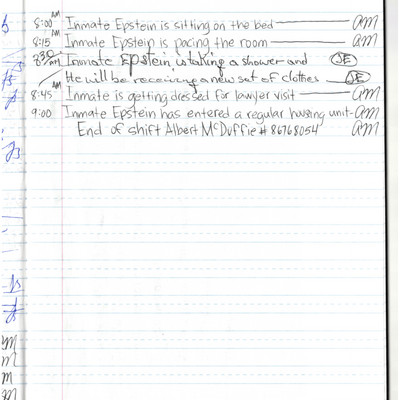 8:00 AM Inmate Epstein is sitting on the bed AM
8:15 AM Inmate Epstein is pacing the room AM
8:30 AM Inmate Epstein is taking a shower and JE
He will be receiving a new set of clothes JE
8:45 AM Inmate is getting dressed for lawyer visit AM
9:00 Inmate Epstein has entered a regular housing unit AM
End of shift Albert McDuffie # 86768054 AM